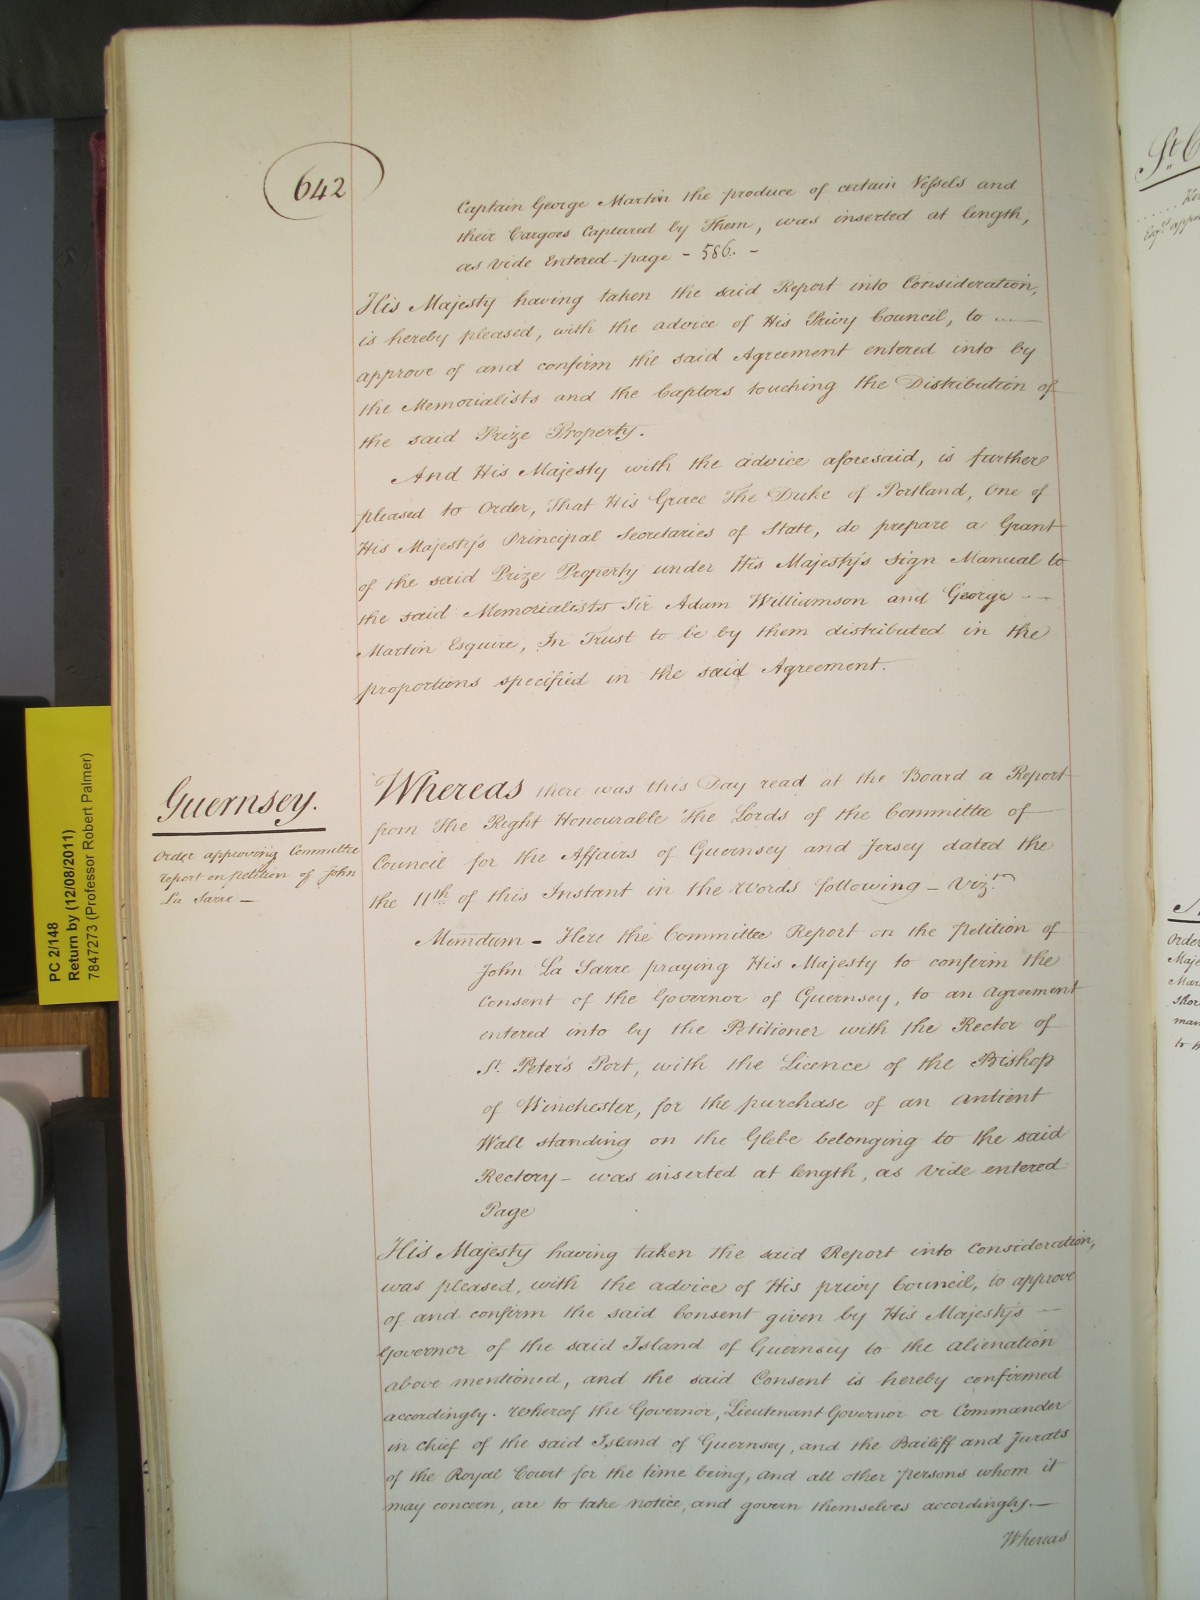 642
Captain George Martin the produce of certain Vessels and
their Cargoes Captured by Them, was inserted at length,
as vide Entered page - 586. -
His Majesty having taken the said Report into Consideration,
is hereby pleased, with the advice of His Privy Council, to
approve of and confirm the said Agreement entered into by
the Memorialists and the Captors touching the Distribution of
the said Prize Property.
And His Majesty with the advice aforesaid, is further
pleased to Order, That His Grace The Duke of Portland, One of
His Majesty's Principal Secretaries of State, do prepare a Grant
of the said Prize Property under His Majesty's Sign Manual to
the said Memorialists Sir Adam Williamson and George
Martin Esquire, In Trust to be by them distributed in the
proportions specified in the said Agreement.
Guernsey.
Order approving Committee
report on petition of John
La Sarre -
Whereas there was this Day read at the Board a Report
from The Right Honourable The Lords of the Committee of
Council for the Affairs of Guernsey and Jersey dated the
the 11th of this Instant in the Words following - Vizt.
Memdum - Here the Committee Report on the Petition of
John La Sarre praying His Majesty to confirm the
Consent of the Governor of Guernsey, to an Agreement
entered into by the Petitioner with the Rector of
St. Peter's Port, with the Licence of the Bishop
of Winchester, for the purchase of an antient
Wall standing on the Glebe belonging to the said
Rectory - was inserted at length, as vide entered
Page
His Majesty having taken the said Report into Consideration,
was pleased, with the advice of His privy Council, to approve
of and confirm the said Consent given by His Majesty's -
Governor of the said Island of Guernsey to the alienation
above mentioned, and the said Consent is hereby confirmed
accordingly. Whereof the Governor, Lieutenant Governor or Commander
in Chief of the said Island of Guernsey, and the Bailiff and Jurats
of the Royal Court for the time being, and all other persons whom it
may concern, are to take notice, and govern themselves accordingly. -
Whereas
PC 2/148
Return by (12/08/2011)
7847273 (Professor Robert Palmer)
Order